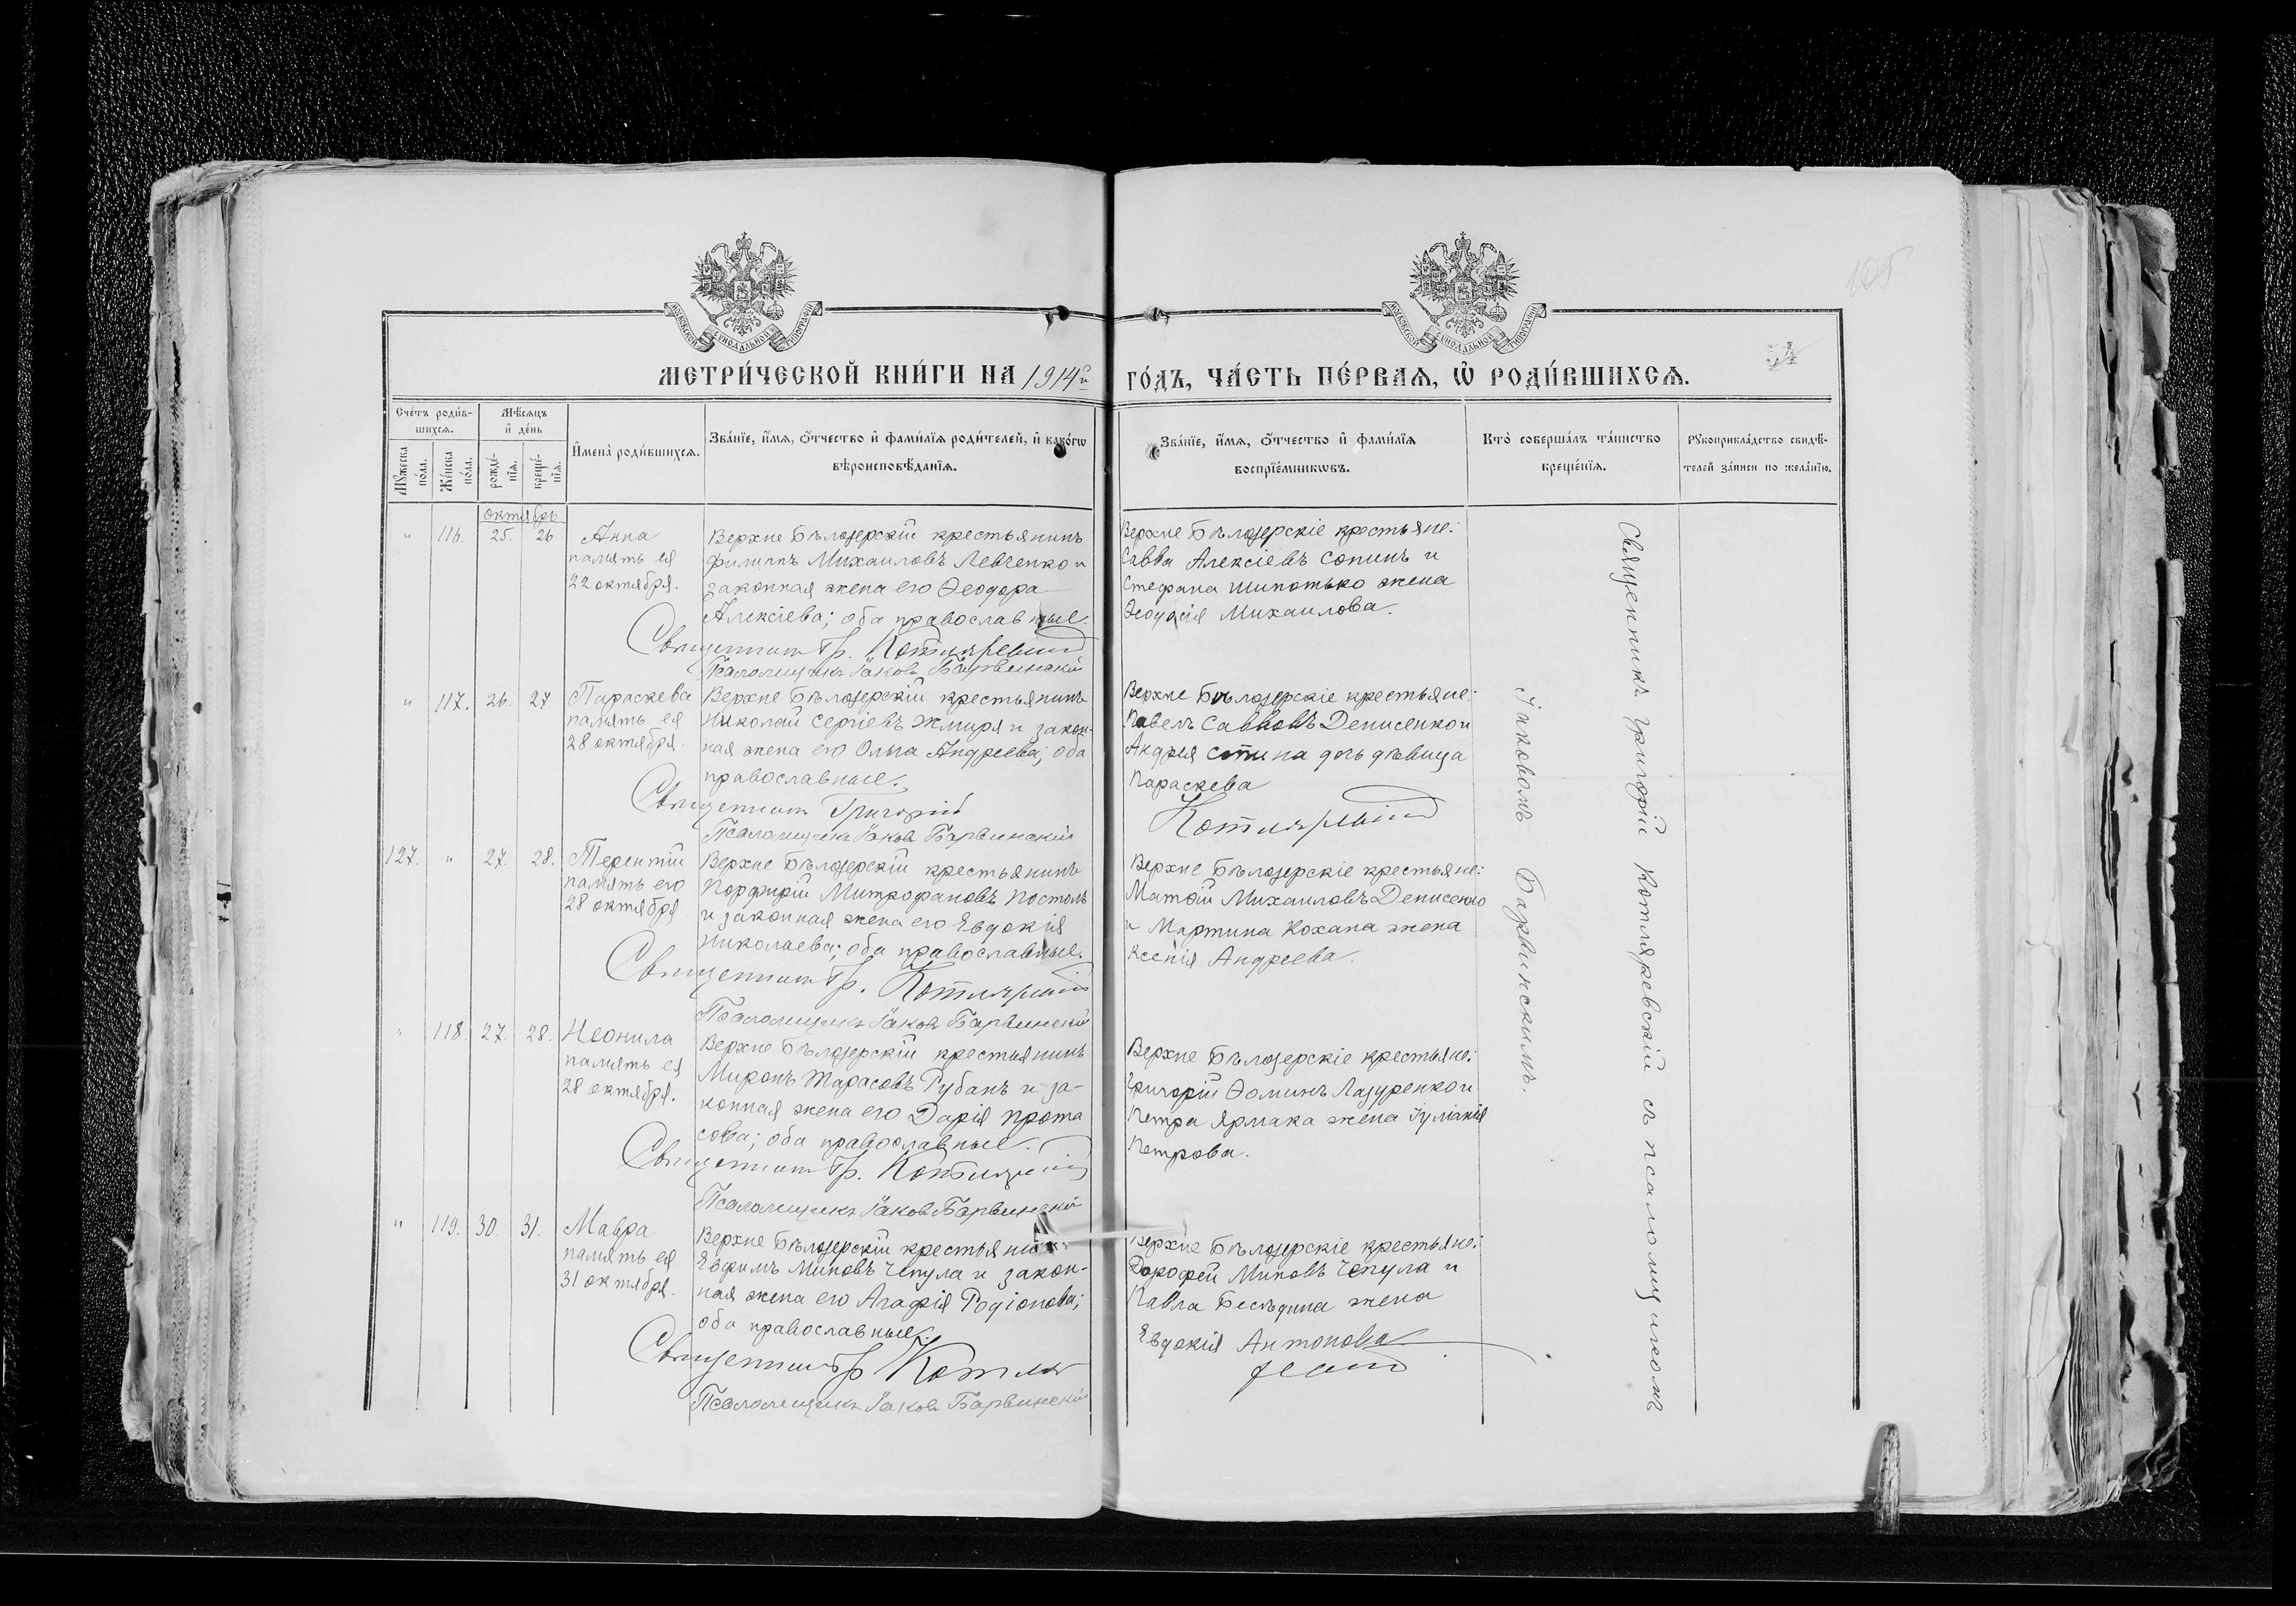 105
МОСКОВСКОЙ СѴНОДАЛЬНОЙ ТИПОГРАФІИ
МОСКОВСКОЙ СѴНОДАЛЬНОЙ ТИПОГРАФІИ
54
МЕТРИ́ЧЕСКОЙ КНИ́ГИ НА 1914й
ГО́ДЪ, ЧА́СТЬ ПЕ́РВАѦ, Ѡ҆ РОДИ́ВШИХСѦ.
Сче́тъ роди́в-
шихсѧ.
Мѣ́сѧцъ
и҆ де́нь
Мꙋ́жеска
по́ла.
Же́нска
по́ла.
рожде́-
нїѧ.
креще́-
нїѧ.
И҆мена̀ роди́вшихсѧ.
Зва́нїе, и҆́мѧ, ѻ҆́тчество и҆ фами́лїѧ роди́телей, и҆ како́гѡ
вѣроисповѣ́данїѧ.
Зва́нїе, и҆́мѧ, ѻ҆́тчество и҆ фами́лїѧ
воспрїе́мникѡвъ.
Кто̀ соверша́лъ та́инство
креще́нїѧ.
Рꙋкоприкла́дство свидѣ́-
телей за́писи по жела́нїю.
октябрь
" 116. 25. 26
Анна
память ея
22 октября.
Верхне Бѣлозерскій крестьянинъ
Филиппъ Михаиловъ Левченко и
законная жена его Ѳеодора
Алексіева; оба православные.
Священникъ Гр. Котляревскій
Псаломщикъ Іаковъ Барвинскій
Верхне Бѣлозерскіе крестьяне:
Савва Алексіевъ Сопинъ и
Стефана Шипотько жена
Ѳеодосія Михаилова.
" 117. 26. 27
Параскева
память ея
28 октября.
Верхне Бѣлозерскій крестьянинъ
Николай Сергіевъ Жмиря и закон-
ная жена его Ольга Андреева; оба
православные.
Священникъ Григорій
Псаломщикъ Іаковъ Барвинскій
Верхне Бѣлозерскіе крестьяне:
Павелъ Саввовъ Денисенко и
Андрея дочь дѣвица
Параскева
Котляревскій
127. " 27. 28.
Терентій
память его
28 октября
Верхне Бѣлозерскій крестьянинъ
Порфирій Митрофановъ Постолъ
и законная жена его Евдокія
Николаева; оба православные.
Священникъ Гр. Котляревскій
Псаломщикъ Іаковъ Барвинскій
Верхне Бѣлозерскіе крестьяне:
Матѳій Михаиловъ Денисенко
и Мартина Кохана жена
Ксенія Андреева.
" 118. 27. 28.
Неонила
память ея
28 октября.
Верхне Бѣлозерскій крестьянинъ
Миронъ Тарасовъ Рубанъ и за-
конная жена его Дарія Прота
сова; оба православные.
Священникъ Гр. Котляревскій
Псаломщикъ Іаковъ Барвинскій
Верхне Бѣлозерскіе крестьяне:
Григорій Ѳоминъ Лазуренко и
Петра Ярмака жена Іуліанія
Петрова.
" 119. 30. 31.
Мавра
память ея
31 октября.
Верхне Бѣлозерскій крестьянинъ
Евфимъ Миновъ Чепула и закон-
ная жена его Агафія Родіонова;
оба православные.
Священникъ Гр. Котля
Псаломщикъ Іаковъ Барвинскій
Верхне Бѣлозерскіе крестьяне:
Дорофей Миновъ Чепула и
Павла Бесѣдина жена
Евдокія Антонова
ревскій
Священникъ Григорій Котляревскій съ псаломщикомъ
Іаковомъ Барвинскимъ.